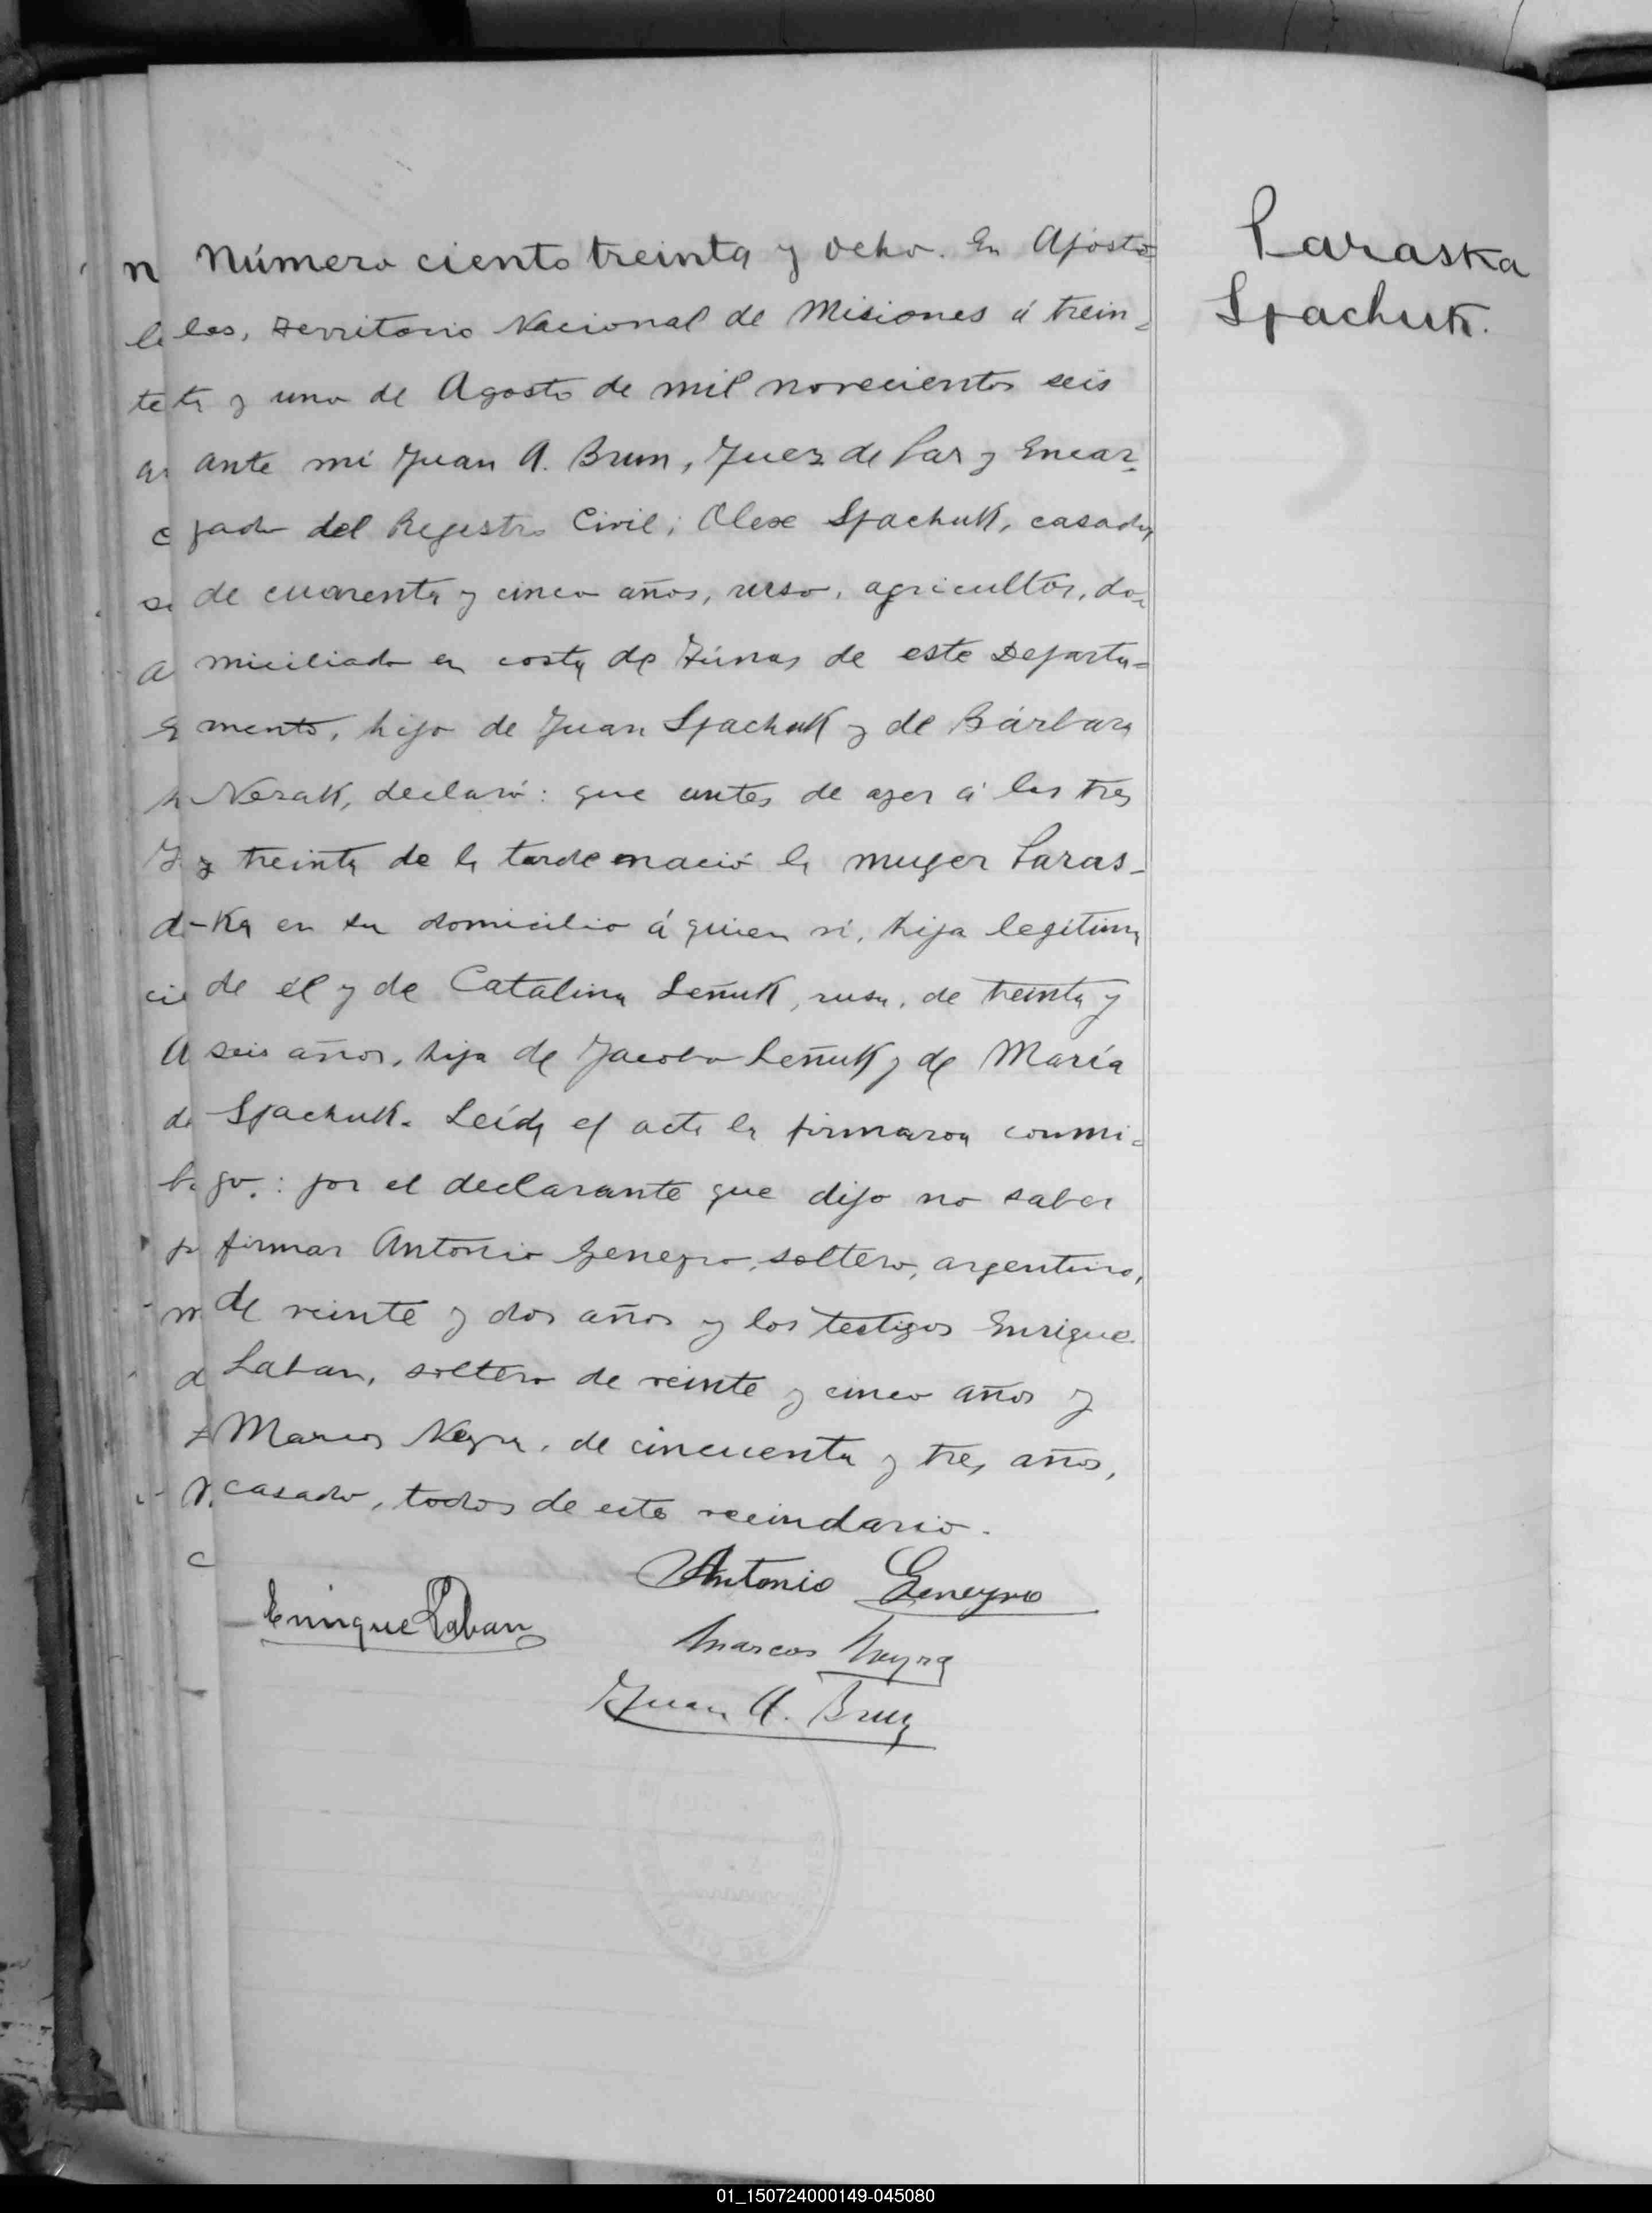 Paraska
Spachuk.
Número ciento treinta y ocho. En Aposto=
les, Territorio Nacional de Misiones á trein=
ta y uno de Agosto de mil novecientos seis
ante mi Juan A. Brun, Juez de Paz y Encar=
gado del Registro Civil; Olexe Spachuk, casado,
de cuarenta y cinco años, ruso, agricultor, do=
miciliado en costa de Túnas de este Departa=
mento, hijo de Juan Spachuk y de Bárbara
Nezak, declaró: que antes de ayer á las tres
y treinta de la tarde nació la muger Paras-
-ka en su domicilio á quien ví, hija legítima
de él y de Catalina Leñuk, rusa, de treinta y
seis años, hija de Jacobo Leñuk y de María
Spachuk. Leida el acta la firmaron conmi=
go: por el declarante que dijo no saber
firmar Antonio Geneyro, soltero, argentino,
de veinte y dos años y los testigos Enrique
Laban, soltero de veinte y cinco años y
Marcos Neyra, de cincuenta y tres años,
casado, todos de este vecindario.
Antonio Geneyro
Enrique Laban
Marcos Neyra
Juan A. Brun
01_150724000149-045080